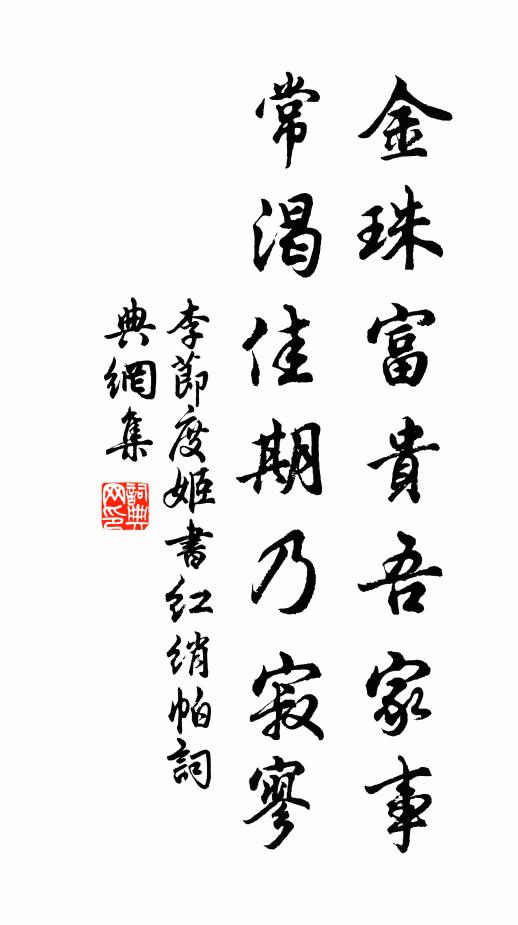 金珠富貴吾家事
常渴佳期乃寂寥
李節度姬書红绡帕詞
典網集
詞典网印